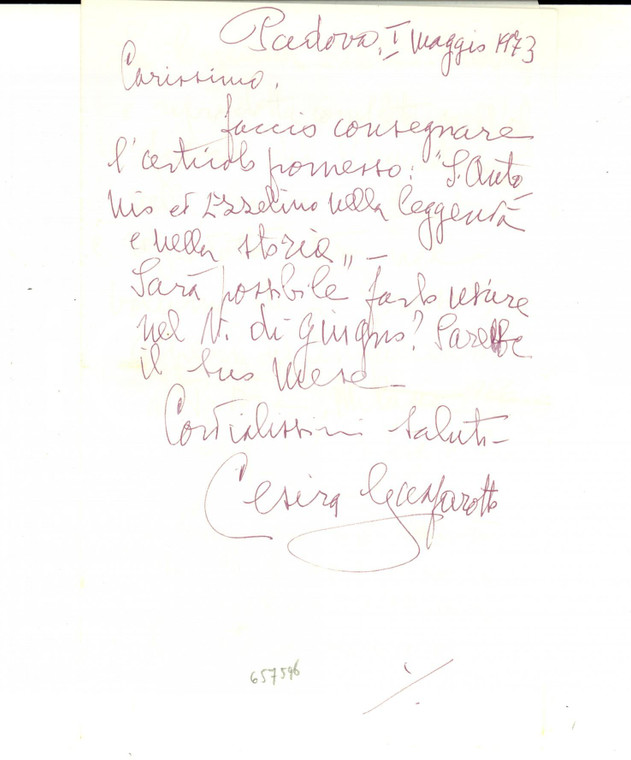 Padova, I maggio 1973
Carissimo,
faccio consegnare
l'articolo promesso: "S. Anto_
nio ed Ezzelino nella leggenda
e nella storia„ –
Sarà possibile farlo uscire
nel N. di giugno? Sarebbe
il suo mese –
Cordialissimi saluti –
Cesira Gasparotto
657596